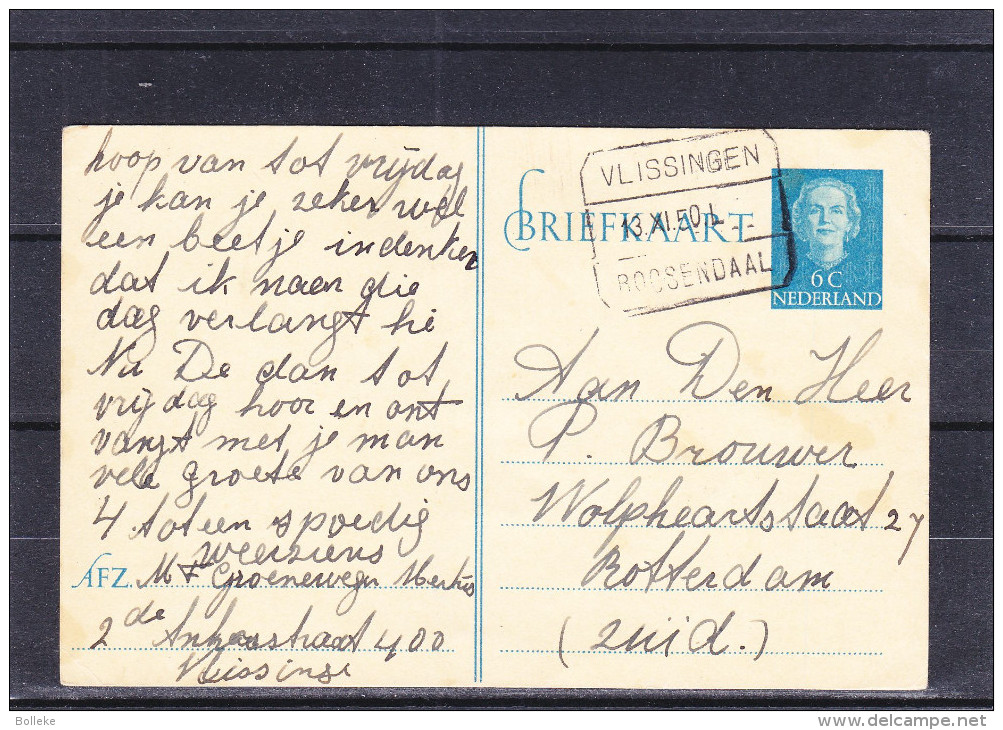 hoop van tot vrijdag
je kan je zeker wel
een beetje indenken
dat ik naer die
dag verlangt hè
Nu De dan tot
vrijdag hoor en ont
vangt met je man
vele groete van ons
4 tot een spoedig
weerziens
AFZ. Groenewegn
2de straat 400
Vlissinge
VLISSINGEN
13.XI.50.L
ROOSENDAAL
BRIEFKAART
6 C
NEDERLAND
Aan Den Heer
P. Brouwer
Wolpheartsstaat 27
Rotterdam
(zuid.)
Bolleke
delcampe.net